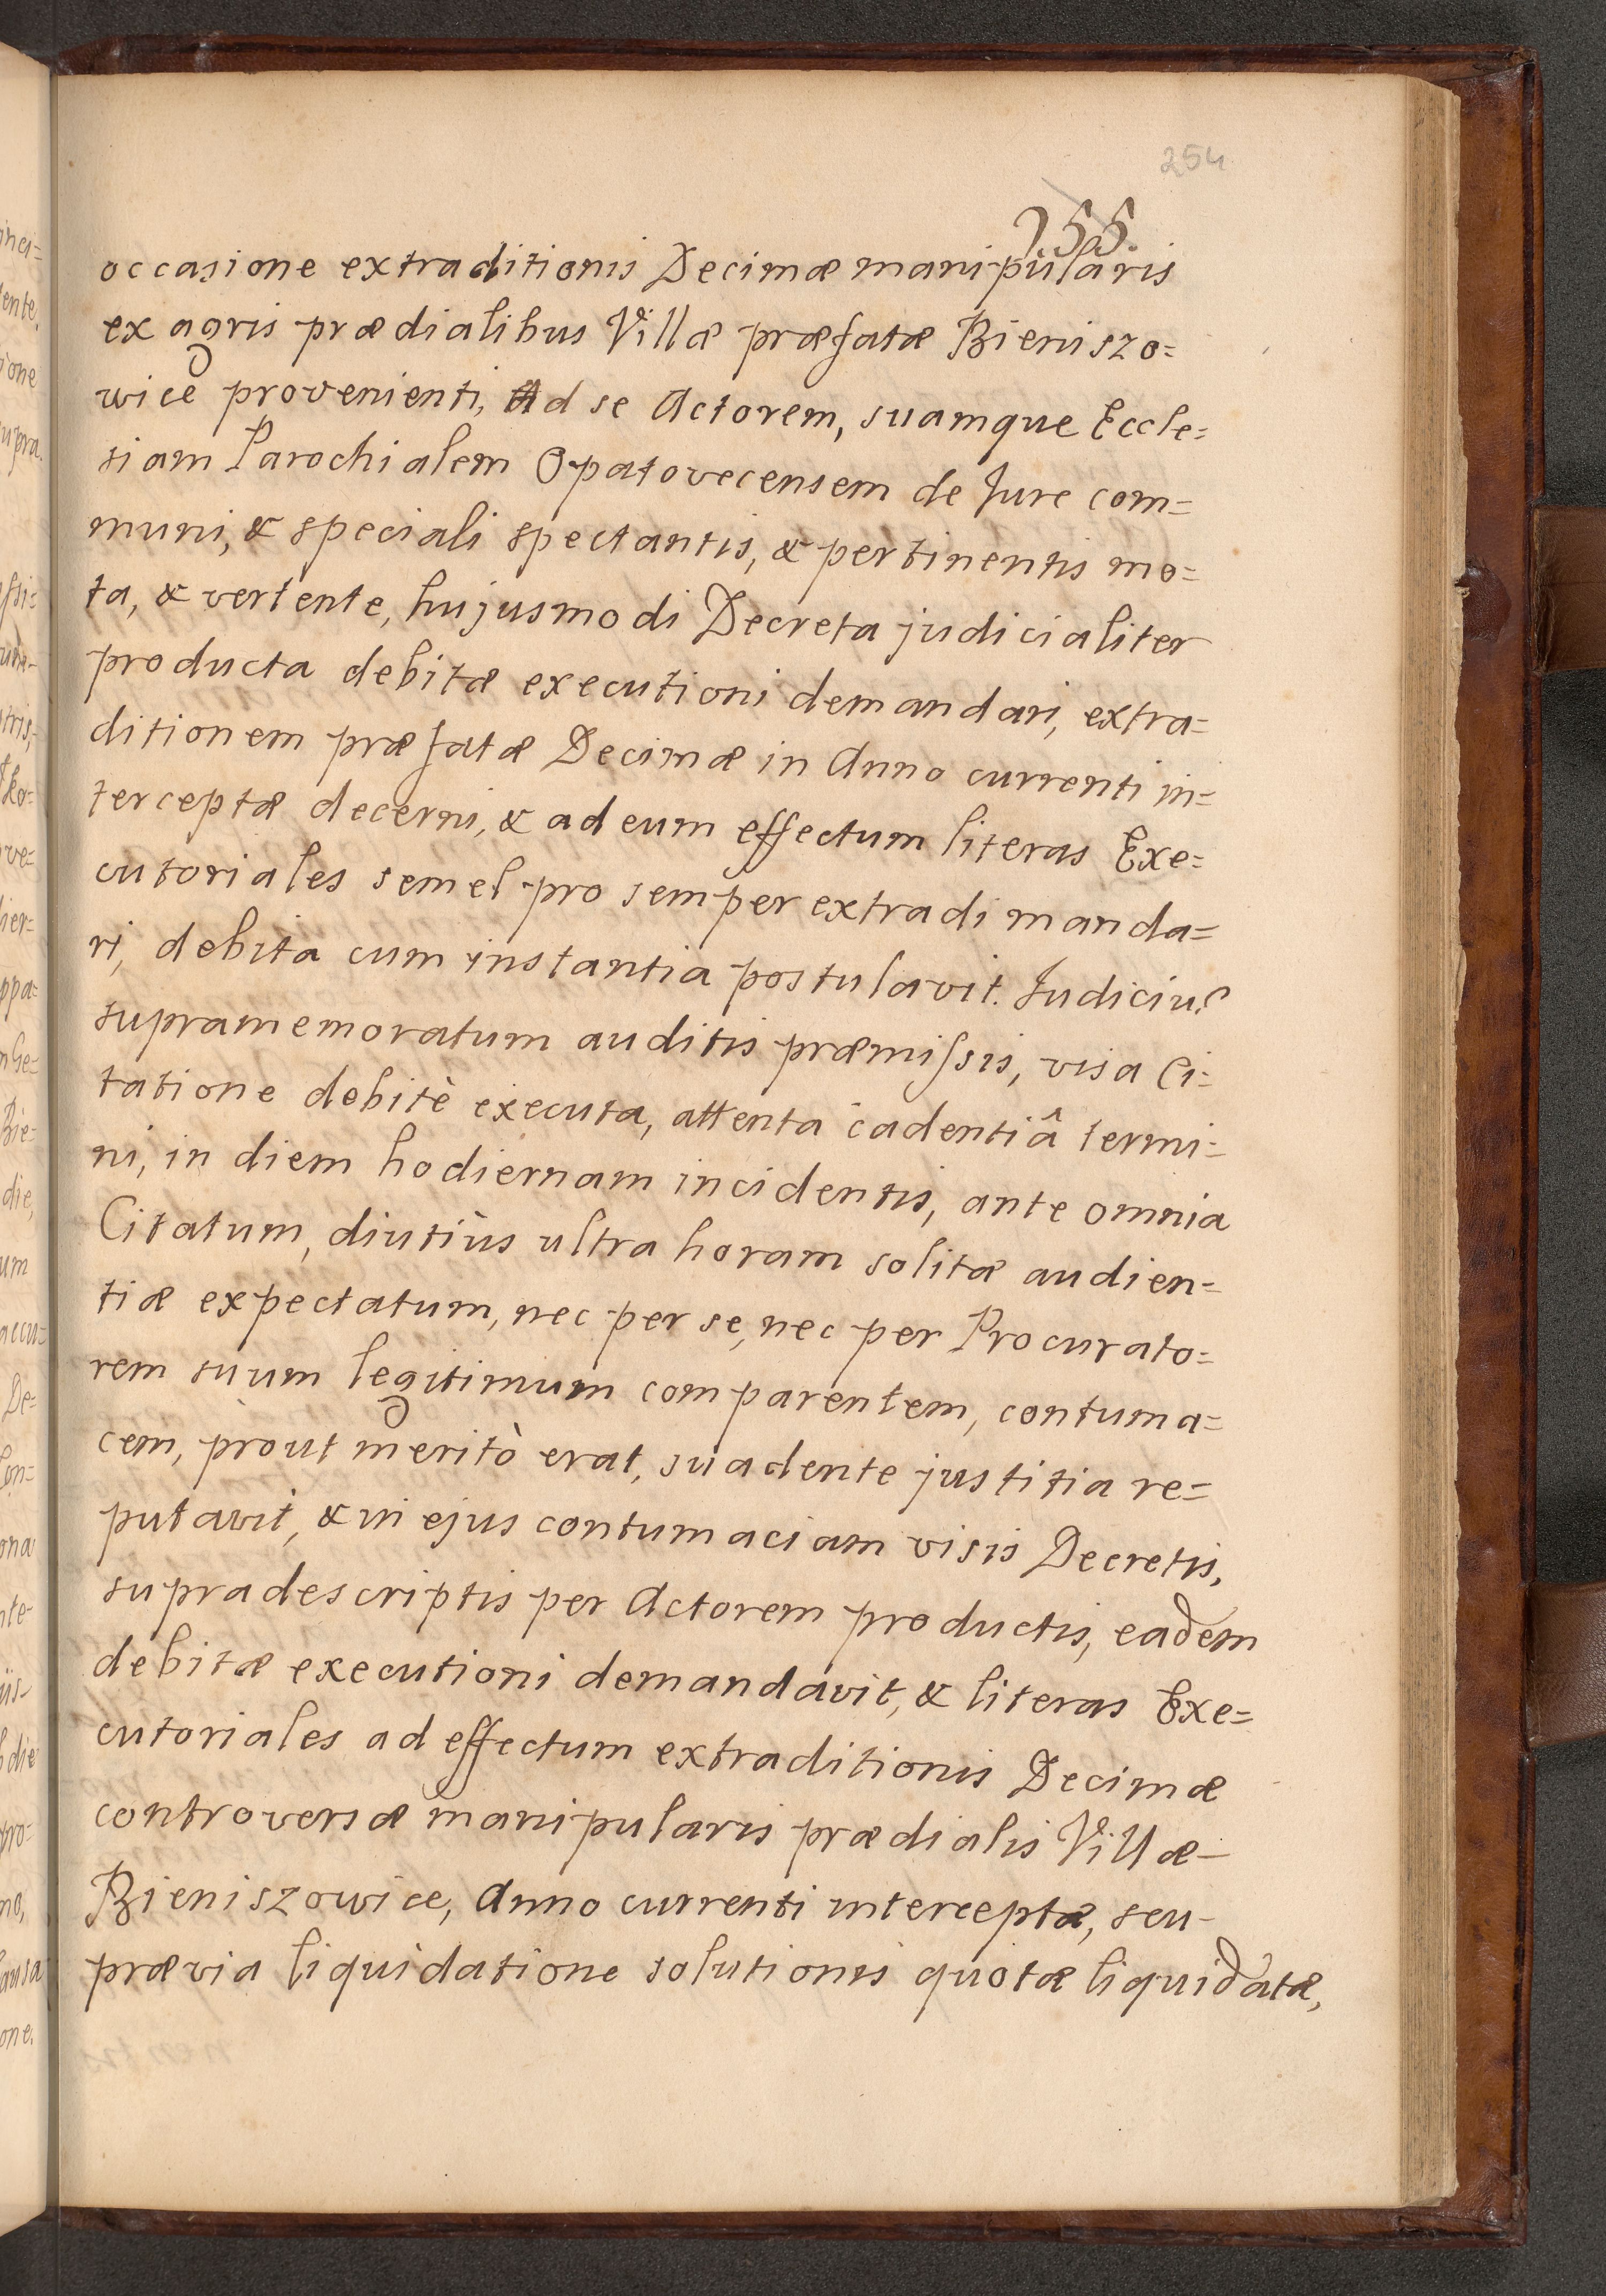 254
255.
occasione extraditionis Decimæ manipularis
ex agris prædialibus Villæ præfatæ Bieniszo=
wice provenienti, Ad se Actorem, suamque Eccle=
siam Parochialem Opatovecensem de Jure com=
muni, & speciali spectantis, & pertinentis mo=
ta, & vertente, hujusmodi Decreta judicialiter
producta debitæ executioni demandari, extra=
ditionem præfatæ Decimæ in Anno currenti in=
terceptæ decerni, & ad eum effectum literas Exe=
cutoriales semel pro semper extradi manda=
ri, debita cum instantia postulavit. Judiciu
supramemoratum auditis præmissis, visa Ci=
tatione debitè executa, attenta cadentiâ termi=
ni, in diem hodiernam incidentis, ante omnia
Citatum, diutiùs ultra horam solitæ audien=
tiæ expectatum, nec per se, nec per Procurato=
rem suum legitimum comparentem, contuma=
cem, prout meritò erat, suadente justitia re=
putavit, & in ejus contumaciam visis Decretis,
supradescriptis per Actorem productis, eadem
debitæ executioni demandavit, & literas Exe=
cutoriales ad effectum extraditionis Decimæ
controversæ manipularis prædialis Villæ
Bieniszowice, Anno currenti interceptæ, seu
prævia liquidatione solutionis quotæ liquidatæ,